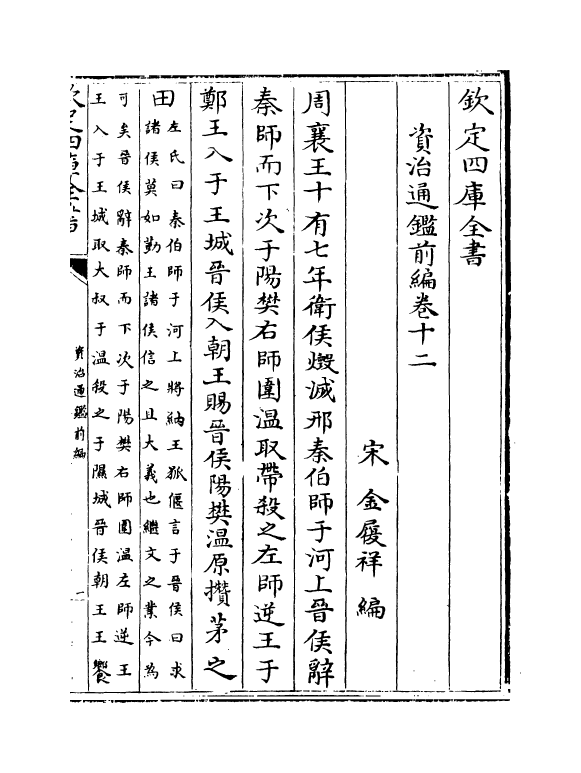 欽定四庫全書
資治通鑑前編卷十二
宋 金履祥 編
周襄王十有七年衛侯燬滅邢秦伯師于河上晉侯辭
秦師而下次于陽樊右師圍溫取帶殺之左師逆王于
鄭王入于王城晉侯入朝王賜晉侯陽樊溫原攢茅之
田
左氏曰秦伯師于河上將納王狐偃言于晉侯曰求
諸侯莫如勤王諸侯信之且大義也繼文之業今為
可矣晉侯辭秦師而下次于陽樊右師圍溫左師逆王
王入于王城取大叔于溫殺之于隰城晉侯朝王王饗
欽定四庫全書
資治通鑑前編
一